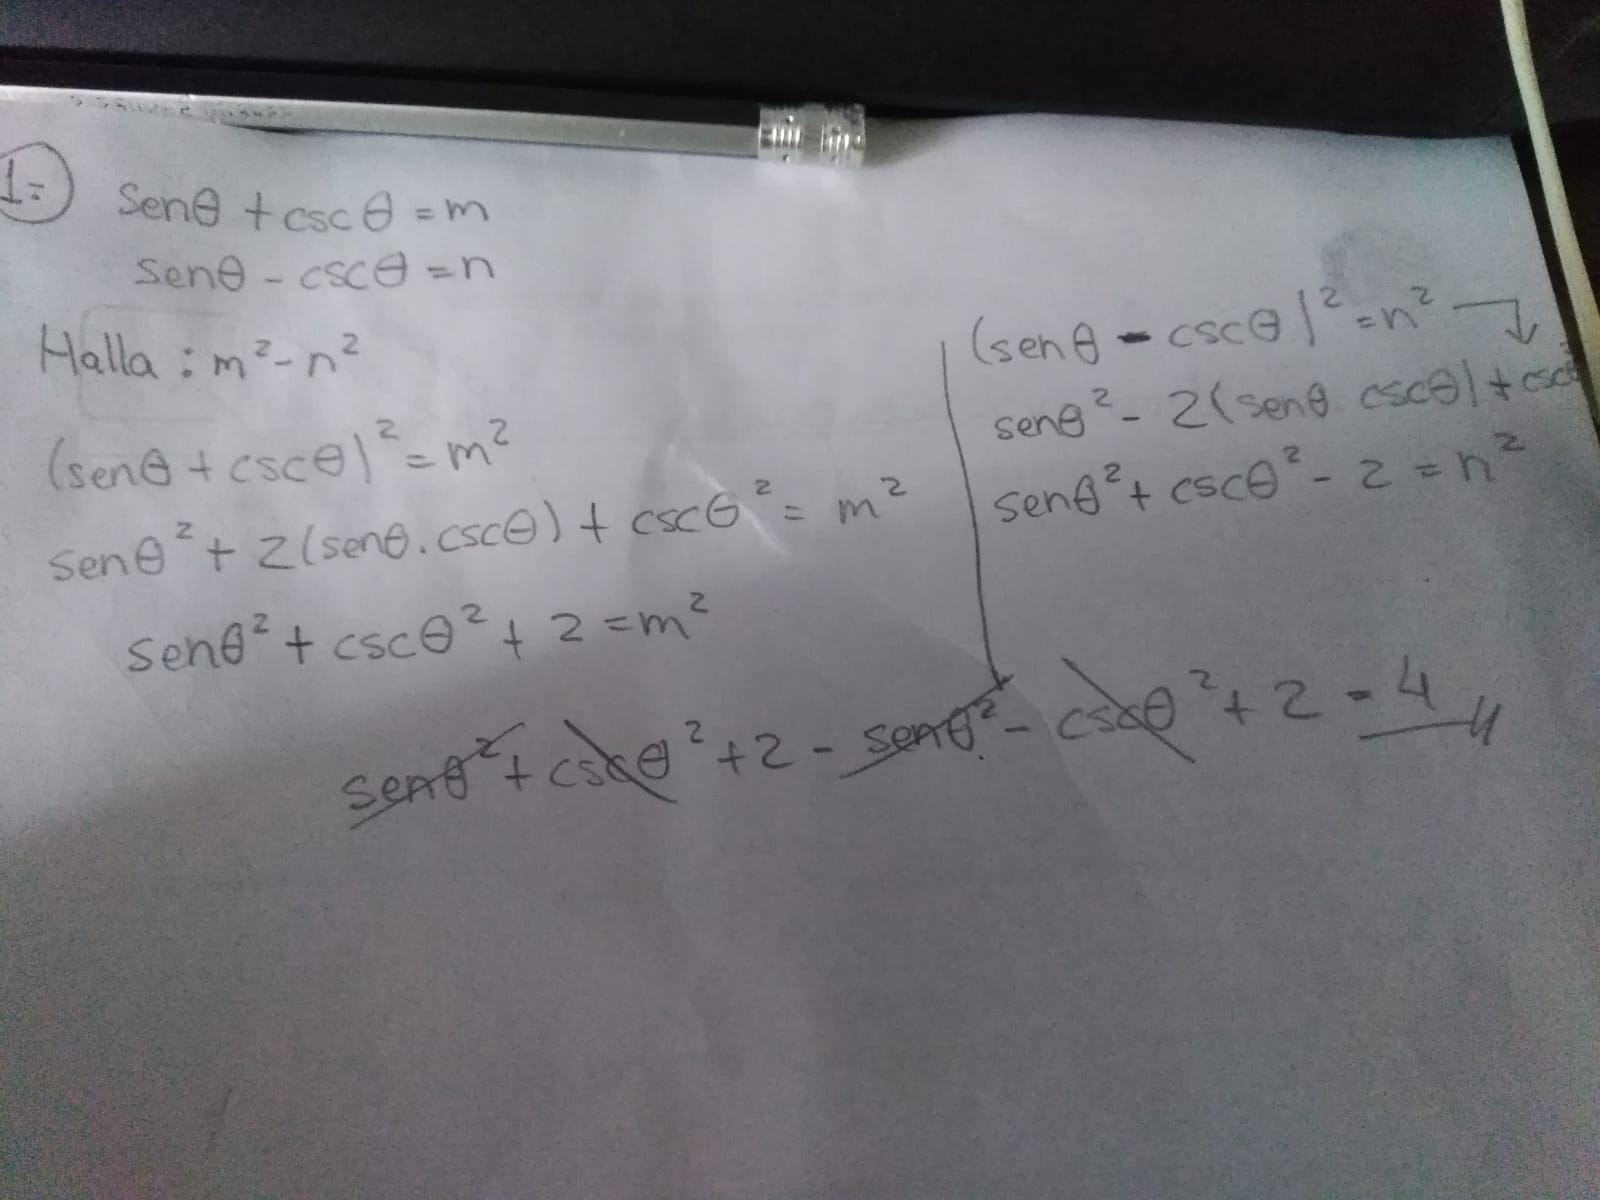 1=) senθ + cscθ = m
senθ - cscθ = n
Halla : m² - n²
(senθ + cscθ)² = m²
senθ² + 2(senθ.cscθ) + cscθ² = m²
senθ² + cscθ² + 2 = m²
(senθ - cscθ)² = n²
senθ² - 2(senθ cscθ) + csc
senθ² + cscθ² - 2 = n²
senθ² + cscθ² + 2 - senθ² - cscθ² + 2 = 4